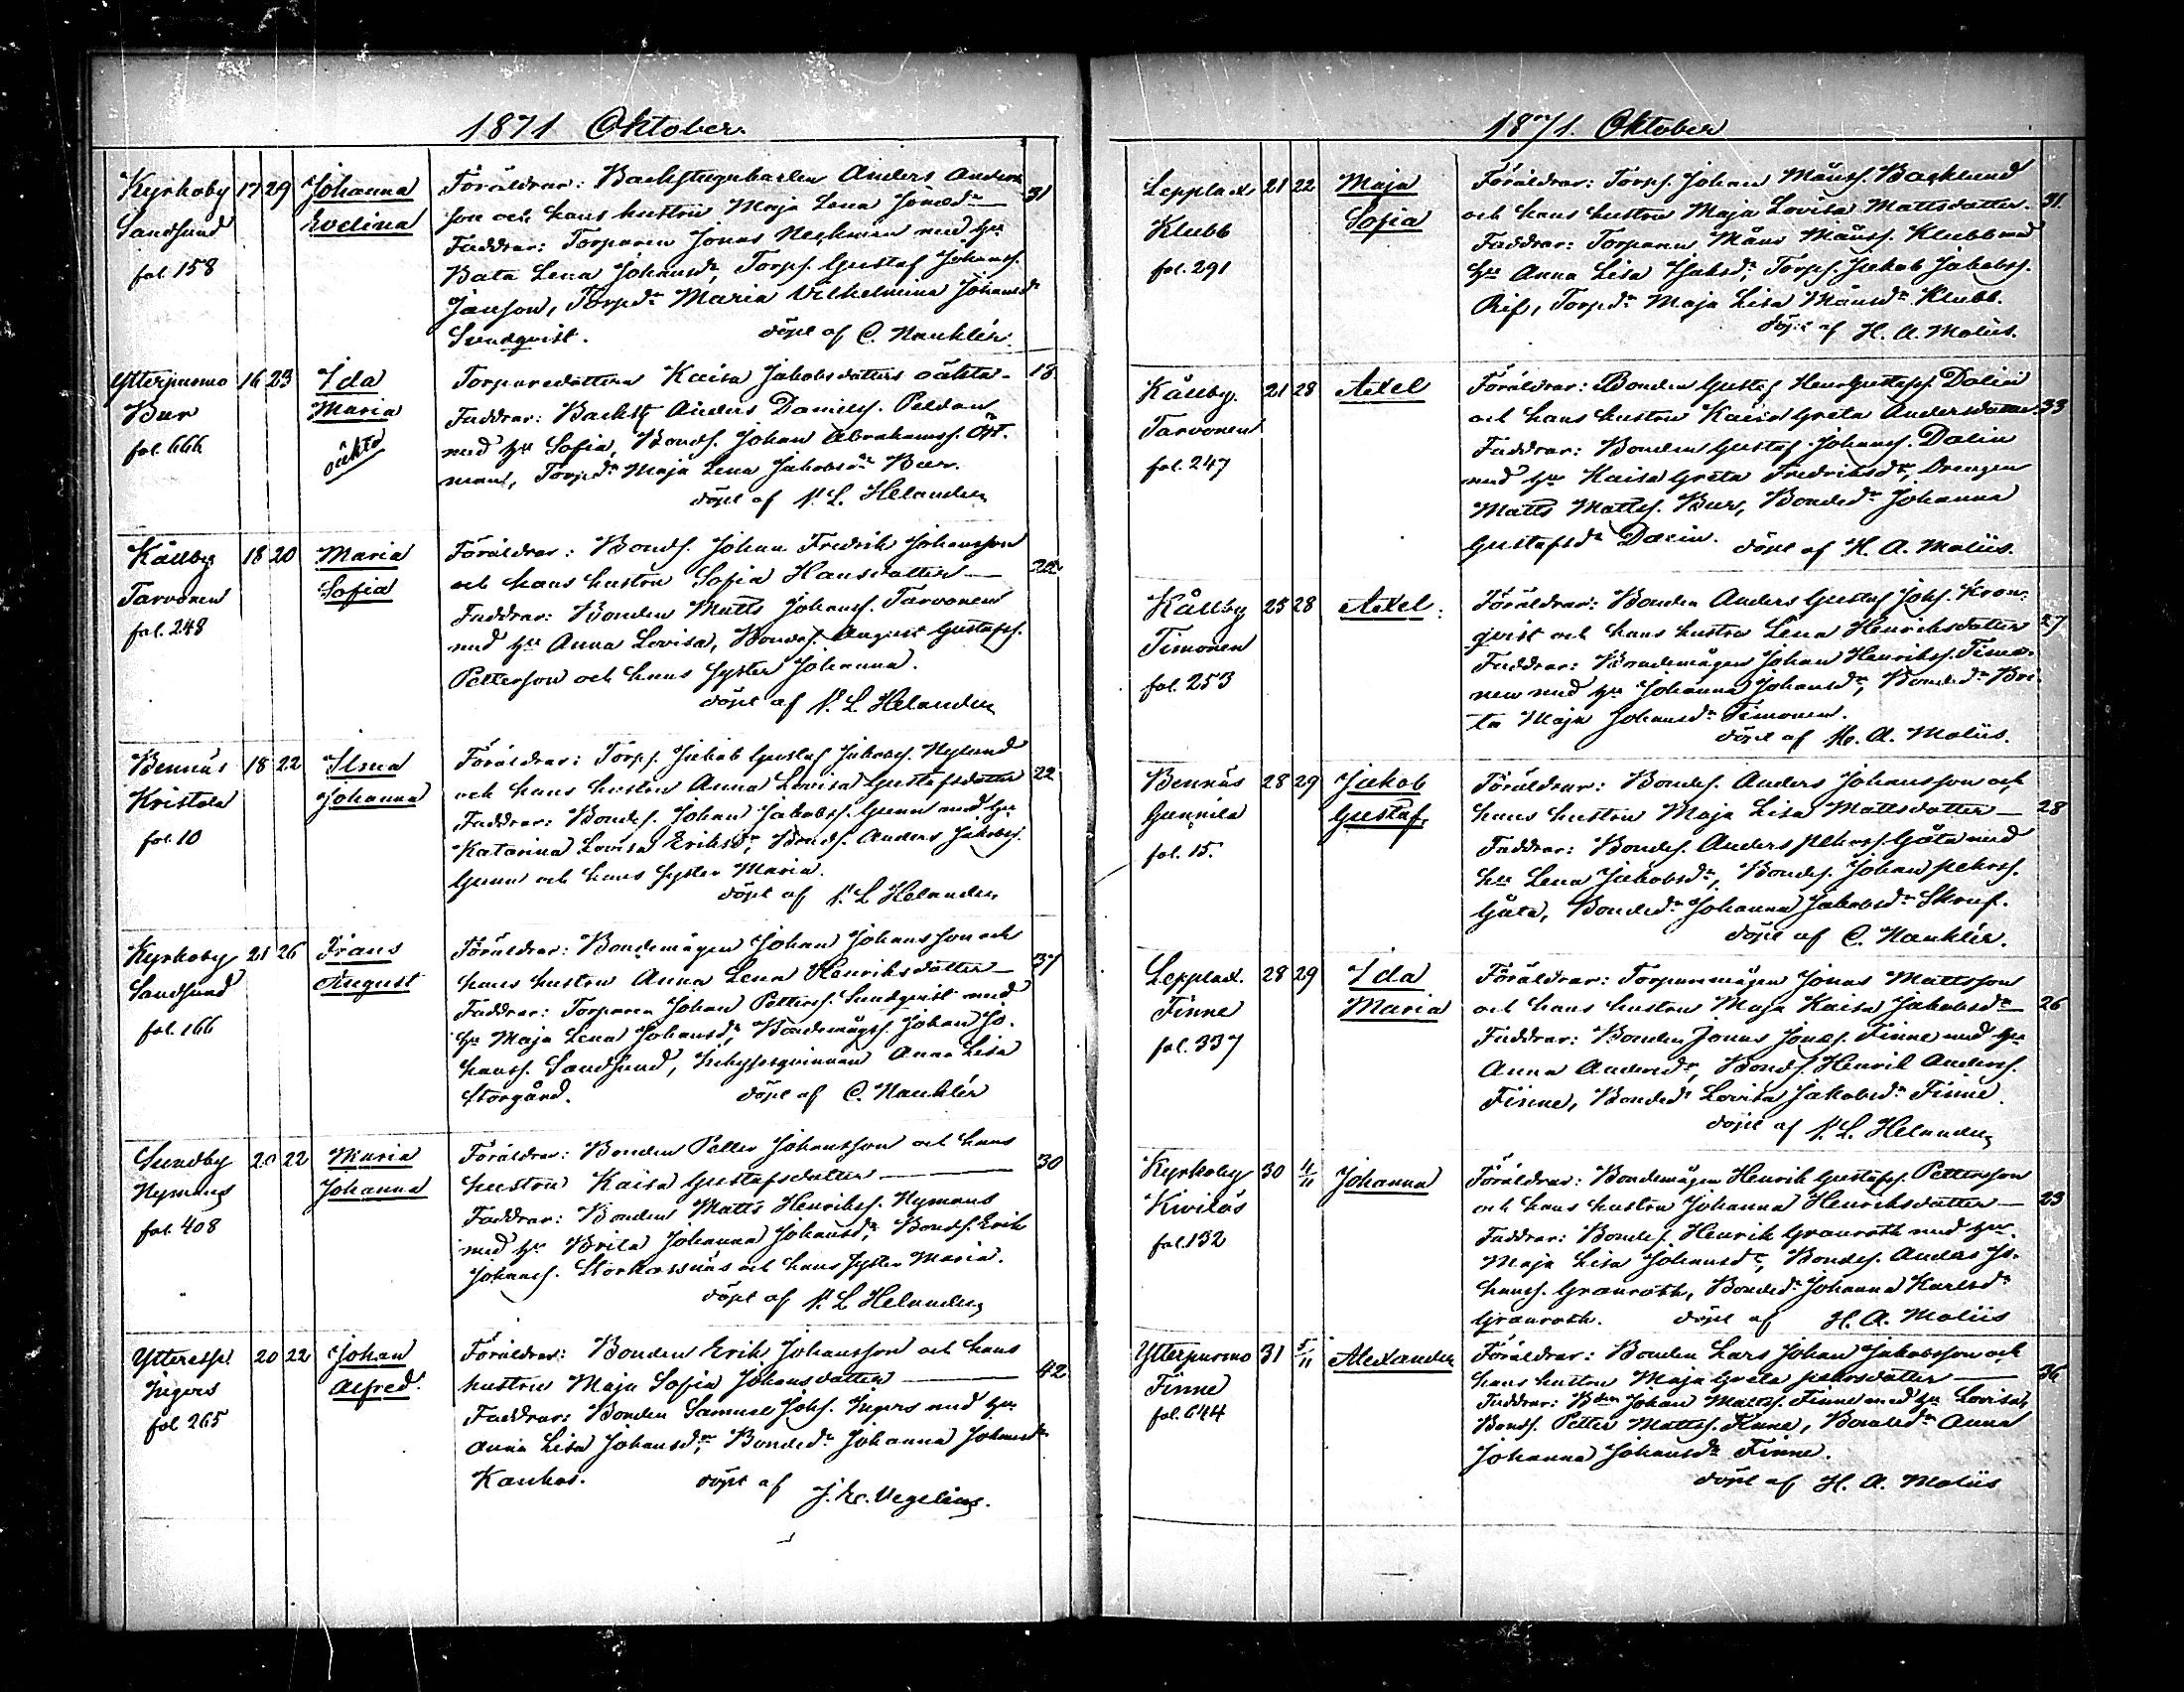 1871 Oktober.
Kyrkoby 17 29 Johanna Föräldrar: Backstugukarlen Anders Anders
Sandsund Evelina son och hans hustru Maja Lena Jonæd:r — 31
fol. 158 Faddrar: Torparen Jonas Neckman med h:u
Bata Lena Johansd:r, Torps. Gustaf Johanss.
Janson, Torpd:r Maria Vilhelmina Johansd:r
Sundqvist. döpt af C. Nauklér.
Ytterpurmo 16 23 Ida Torparedottren Kaisa Jakobsdotters oäkta — 18
Bur Maria Faddrar: Backst. Anders Daniels. Peldan
fol. 666 oäkta med h:u Sofia, Bonds. Johan Abrahamss. Öst-
man, Torpd:r Maja Lena Jakobsd:r Bur.
döpt af N. L. Helander
Kållby 18 20 Maria Föräldrar: Bonds. Johan Fredrik Johansson
Tarvonen Sofia och hans hustru Sofia Hansdotter — 22
fol. 248 Faddrar: Bonden Matts Johanss. Tarvonen
med h:u Anna Lovisa, Bondes. August Gustafss.
Petterson och hans syster Johanna.
döpt af N. L. Helander
Bennäs 18 22 Ilma Föräldrar: Torps. Jakob Gustaf Jakobss. Nylund
Kristola Johanna och hans hustru Anna Lovisa Gustafsdotter 22
fol. 10 Faddrar: Bondes. Johan Jakobss. Gunn med h:u
Katarina Lovisa Eriksd:r, Bonds. Anders Jakobss.
Gunn och hans syster Maria.
döpt af N. L. Helander
Kyrkoby 21 26 Frans Föräldrar: Bondemågen Johan Johansson och
Sandsund August hans hustru Anna Lena Henriksdotter — 37
fol. 166 Faddrar: Torparen Johan Petterss. Sundqvist med
h:u Maja Lena Johansd:r, Bondemågs. Johan Jo-
hanss. Sandsund, Inhysesqvinnan Anna Lisa
Storgård. döpt af C. Nauklér
Sundby 20 22 Maria Föräldrar: Bonden Petter Johansson och hans
Nymans Johanna hustru Kaisa Gustafsdotter — 30
fol. 408 Faddrar: Bonden Matts Henrikss. Nymans
med h:u Brita Johanna Johansd:r, Bonds. Erik
Johanss. Storkorsnäs och hans syster Maria.
döpt af N. L. Helander
Ytteresse 20 22 Johan Föräldrar: Bonden Erik Johansson och hans
Ingers Alfred. hustru Maja Sofia Johansdotter — 42
fol 265 Faddrar: Bonden Samuel Johs. Ingers med h:u
Anna Lisa Johansd:r, Bonded:r Johanna Johansd:r
Kankos. döpt af J. E. Vegelius.
1871. Oktober
Lepplax 21 22 Maja Föräldrar: Torps. Johan Månss. Backlund
Klubb Sofia och hans hustru Maja Lovisa Mattsdotter. 31
fol. 291 Faddrar: Torparen Måns Månss. Klubb med
h:u Anna Lisa Isaksd:r, Torps. Jakob Jakobss.
Rif, Torpd:r Maja Lisa Månsd:r Klubb.
döpt af H. A. Moliis.
Kållby. 21 28 Axel Föräldrar: Bonden Gustaf Henr Gustafss. Dalin
Tarvonen och hans hustru Kaisa Greta Andersdotter 33
fol. 247 Faddrar: Bonden Gustaf Johanss. Dalin
med h:u Kaisa Greta Fredriksd:r, Drengen
Matts Mattss. Bur, Bonded:r Johanna
Gustafsd:r Dalin. döpt af H. A. Moliis.
Kållby 25 28 Axel. Föräldrar: Bonden Anders Gustaf Johs. Kron-
Timonen qvist och hans hustru Lena Henriksdotter 27
fol. 253 Faddrar: Bondemågen Johan Henrikss. Timo-
nen med h:u Johanna Johansd:r, Bonded:r Bri-
ta Maja Johansd:r Timonen.
döpt af H. A. Moliis.
Bennäs 28 29 Jakob Föräldrar: Bondes. Anders Johansson och
Gunnila Gustaf. hans hustru Maja Lisa Mattsdotter — 28
fol. 15. Faddrar: Bondes. Anders Pehrss. Gåta med
h:u Lena Jakobsd:r, Bondes. Johan Pehrss.
Gåta, Bonded:r Johanna Jakobsd:r Skruf.
döpt af C. Nauklér.
Lepplax. 28 29 Ida Föräldrar: Torparemågen Jonas Mattsson
Finne Maria och hans hustru Maja Kaisa Jakobsd:r — 26
fol. 337 Faddrar: Bonden Jonas Jonæs. Finne med h:u
Anna Andersd:r, Bonds. Henrik Anderss.
Finne, Bonded:r Lovisa Jakobsd:r Finne.
döpt af N. L. Helander
Kyrkoby 30 4/11 Johanna Föräldrar: Bondemågen Henrik Gustafss. Pettersson
Kivilös och hans hustru Johanna Henriksdotter — 23
fol. 132 Faddrar: Bondes. Henrik Granroth med h:u
Maja Lisa Johansd:r, Bondes. Anders Jo-
hanss. Granroth, Bonded:r Johanna Karlsd:r
Granroth. döpt af H. A. Moliis
Ytterpurmo 31 5/11 Alexander Föräldrar: Bonden Lars Johan Jakobsson och
Finne hans hustru Maja Greta Pehrsdotter — 36
fol. 644 Faddrar: Bden Johan Mattss. Finne med h:u Lovisa,
Bonds. Petter Mattss. Finne, Bonded:r Anna
Johanna Johansd:r Finne.
döpt af H. A. Moliis